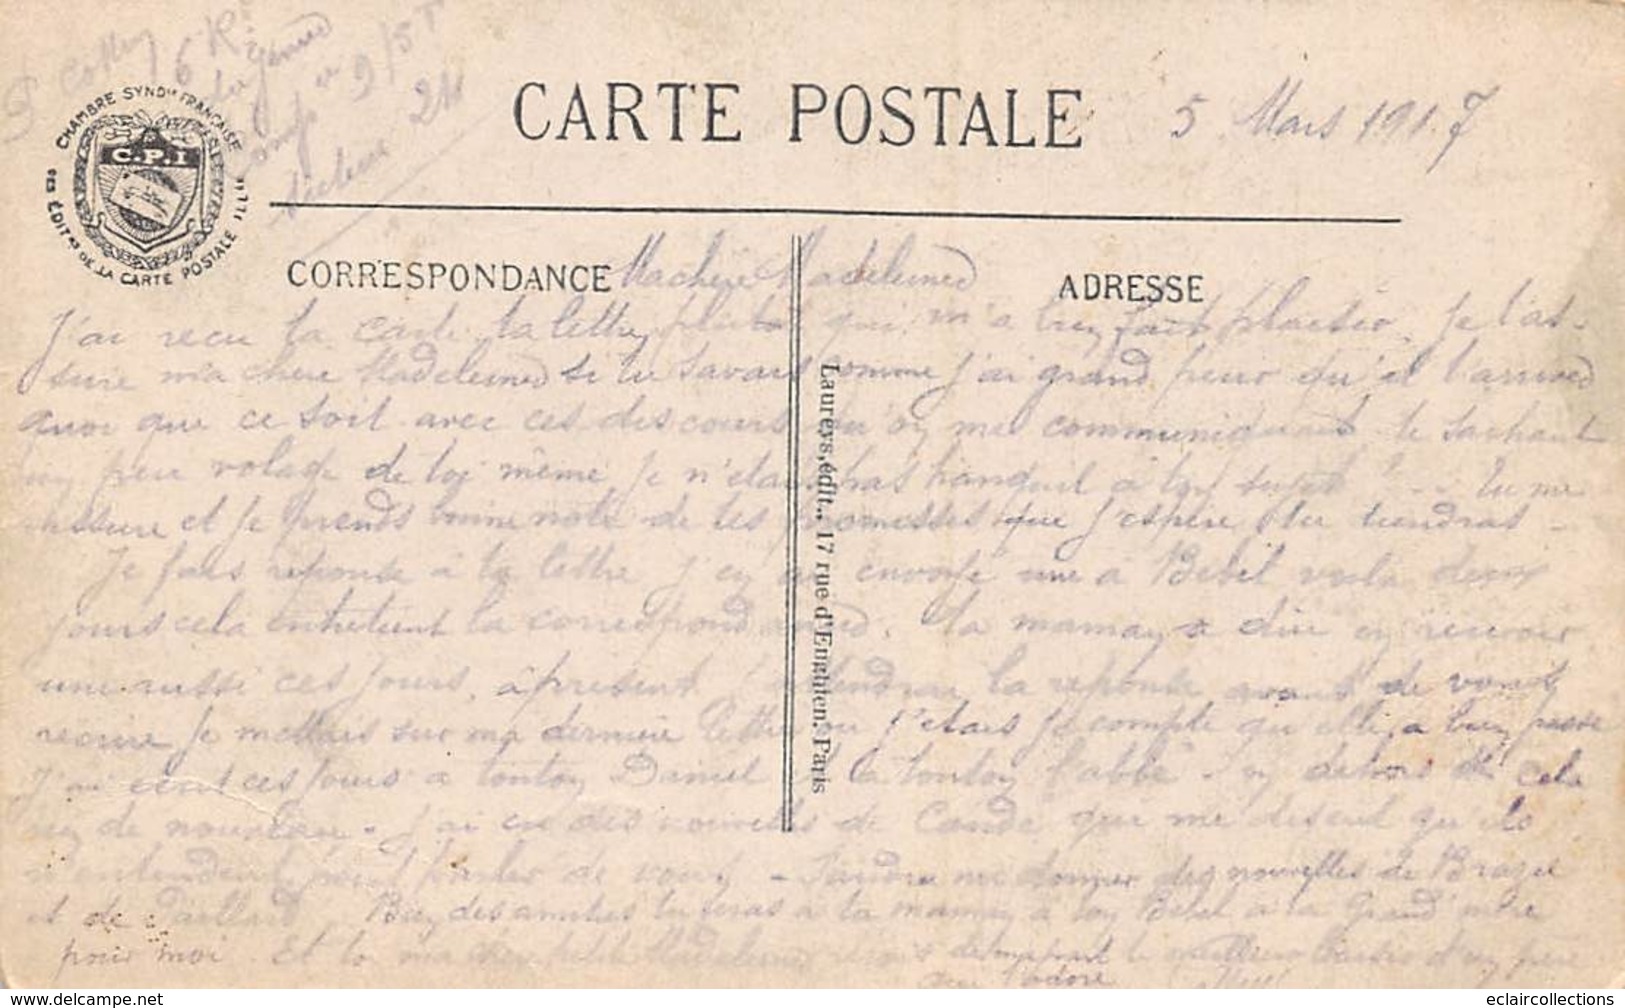 6 Rt
du génie
Comp ie 9/5 T
Secteur 211
CARTE POSTALE
5 Mars 1917
CHAMBRE SYND le FRANÇAISE
C.P.I
DES ÉDIT rs DE LA CARTE POSTALE ILL
CORRESPONDANCE
Ma chère Madeleine
ADRESSE
J'ai reçu ta carte ta lettre plutot qui m'a bien fait plaisir. Je t'as-
sure ma chère Madeleine si tu savais comme j'ai grand peur qu'il t'arrive
quoi que ce soit avec ces discours qu'on me communiquait te sachant
un peu volage de toi même je n'étais pas tranquil à ton sujet - Tu me
rassure et je prends bonne note de tes promesses que j'espère tu tiendras -
Je fais réponse à ta lettre, j'en ai envoyé une a Bebel voila deux
jours cela entretient la correspondance. Ta maman a dû en recevoir
une aussi ces jours, àprésent j'attendrai la réponse avant de vous
récrire je mettais sur ma dernière lettre ou j'étais je compte qu'elle a bien passé
J'ai écrit ces jours a tonton Daniel à la tonton l'abbé - en dehors de cela
rien de nouveau - J'ai eu des nouvelles de Condé que me disent qu'ils
n'entendent point parler de vous - Faudra me donner des nouvelles de Brazé
et de Taillard Bien des amitiés tu feras à ta maman à ton Bebel à la Grand mère
pour moi. Et toi ma chère petite Madeleine reçois de ma part le meilleur baiser d'un père
qui t'adore
Laureys, édit., 17 rue d'Enghien, Paris
eclaircollections
www.delcampe.net